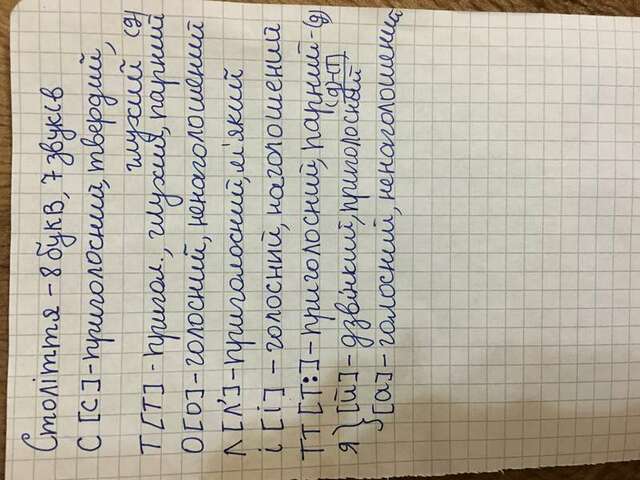 Століття – 8 букв, 7 звуків
С [с] - приголосний, твердий,
глухий (д)
Т [т] - пригол., глухий, парний
О [о] - голосний, ненаголошений
Л [л'] - приголосний, м'який
і [і] - голосний, наголошений
ТТ [т:] - приголосний, парний - (д)
(д-т)
я } [й] - дзвінкий, приголосний
[а] - голосний, ненаголошений